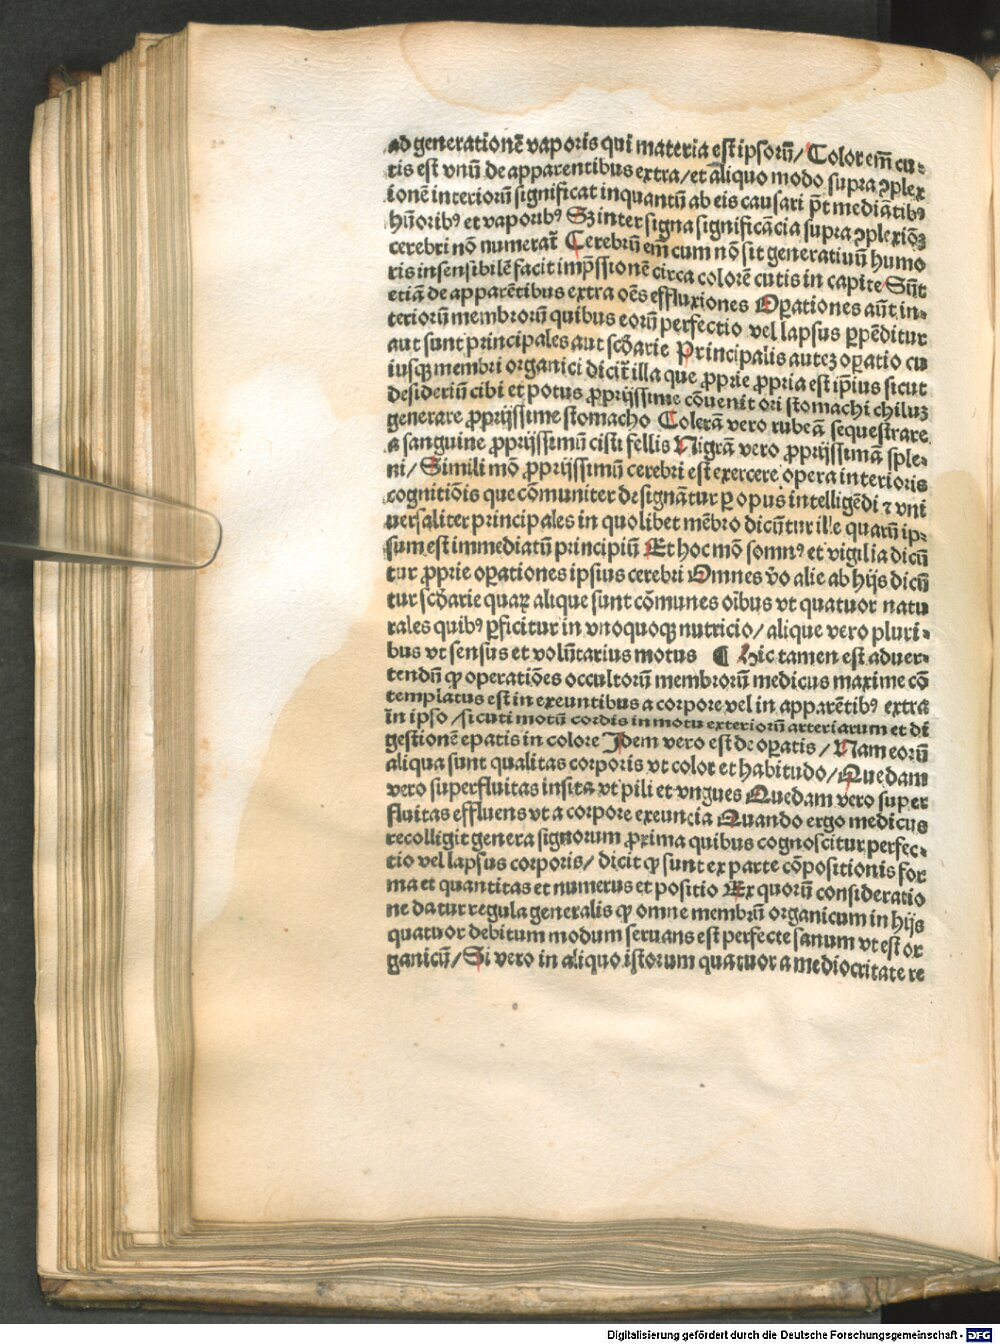 ad generationē vaporis qui materia est ipsorū/ Color em̄ cu⸗
tis est vnū de apparentibus extra/et aliquo modo supra ꝯplex
ionē interiorū significat inquantū ab eis causari pn̄t mediātibꝰ
hūoribꝰ et vaporibꝰ Sꝫ inter signa significācia supra ꝯplexiōꝫ
cerebri nō numerat̄ Cerebrū em̄ cum nō sit generatiuū humo
ris insensibilē facit imp̄ssionē circa colorē cutis in capite Sūt
etiā de apparētibus extra oēs effluxiones Oꝑationes aūt in⸗
teriorū membrorū quibus eorū perfectio vel lapsus ꝑpēditur
aut sunt principales aut scd̄arie Principalis autez oꝑatio cu
iusqꝫ membri organici dicit̄ illa que ꝓprie ꝓpria est ip̄ius sicut
desideriū cibi et potus ꝓprijssime cōuenit ori stomachi chiluꝫ
generare ꝓprijssime stomacho Colerā vero rubeā sequestrare
a sanguine ꝓprijssimū cisti fellis Nigrā vero ꝓprijssimā sple⸗
ni/ Simili mō ꝓprijssimū cerebri est exercere opera interioris
cognitiōis que cōmuniter designātur ꝑ opus intelligēdi ⁊ vni
uersaliter principales in quolibet mēbro dicūtur ille quarū ip⸗
sum est immediatū principiū Et hoc mō somnꝰ et vigilia dicū
tur ꝓprie oꝑationes ipsius cerebri Omnes v̄o alie ab hijs dicū
tur scd̄arie quaꝝ alique sunt cōmunes oībus vt quatuor natu
rales quibꝰ ꝑficitur in vnoquoqꝫ nutricio/ alique vero pluri⸗
bus vt sensus et volūtarius motus ¶ Hic tamen est aduer⸗
tendū ꝙ operatiōes occultorū membrorū medicus maxime cō
templatus est in exeuntibus a corpore vel in apparētibꝰ extra
in ipso /sicuti motū cordis in motu exteriorū arteriarum et di
gestionē epatis in colore Idem vero est de oꝑatis / Nam eorū
aliqua sunt qualitas corporis vt color et habitudo/ Quedam
vero superfluitas insita vt pili et vngues Quedam vero super
fluitas effluens vt a corpore exeuncia Quando ergo medicus
recolligit genera signorum ꝓxima quibus cognoscitur perfec⸗
tio vel lapsus corporis/ dicit ꝙ sunt ex parte cōpositionis for
ma et quantitas et numerus et positio Ex quorū consideratio
ne datur regula generalis ꝙ omne membrū organicum in hijs
quatuor debitum modum seruans est perfecte sanum vt est or
ganicū/ Si vero in aliquo istorum quatuor a mediocritate re
Digitalisierung gefördert durch die Deutsche Forschungsgemeinschaft - DFG